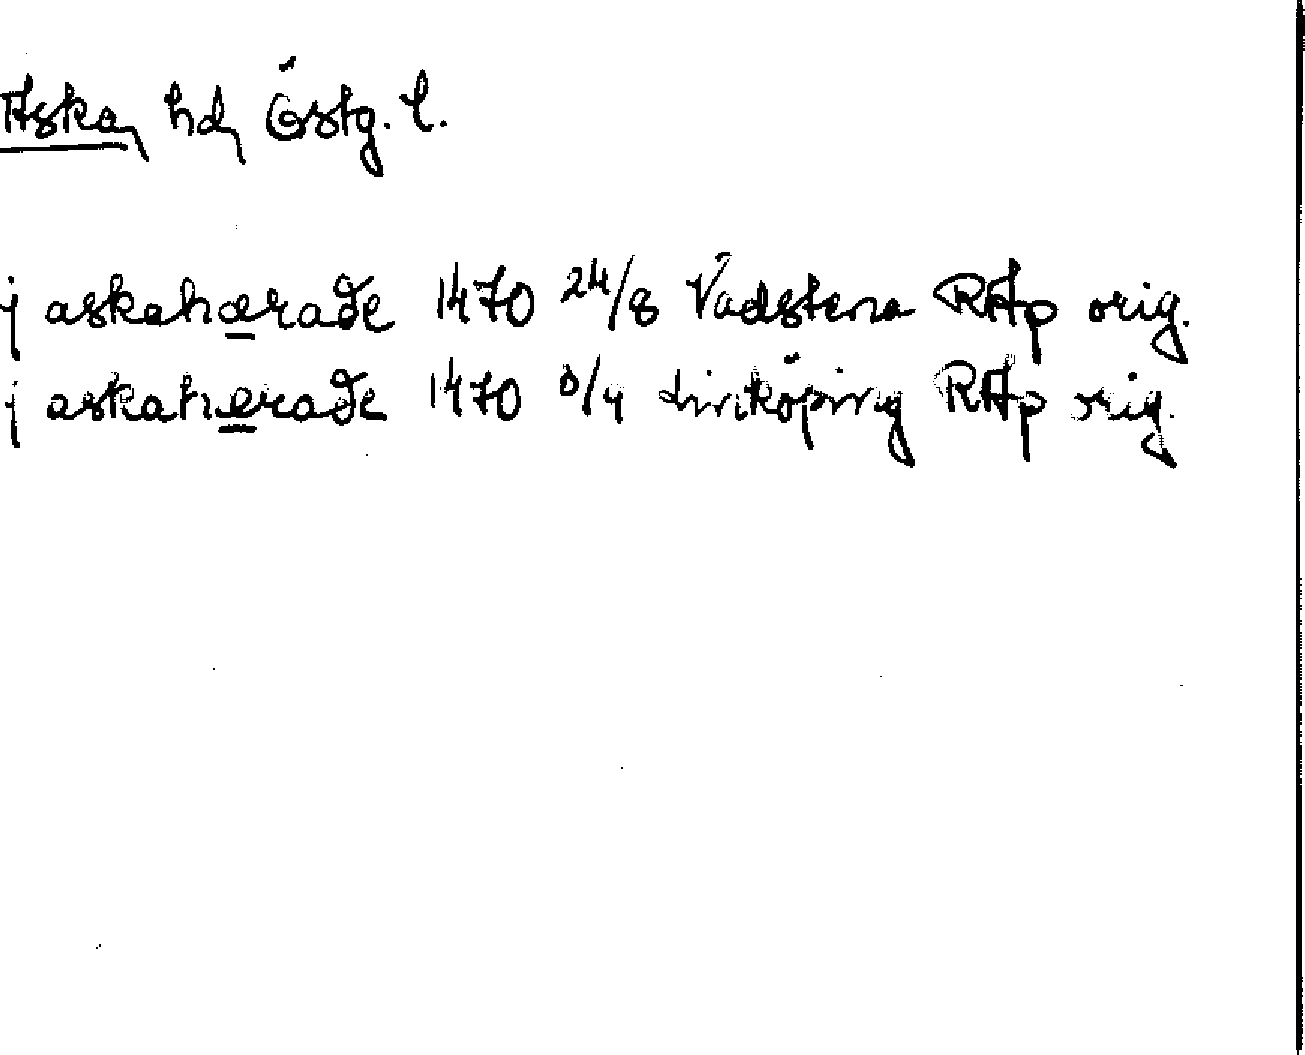 Aska, hd, Östg. l.
j askahæraðe 1470 24/8 Vadstena RAp orig.
j askaheraðe 1470 8/9 Linköping RAp orig.